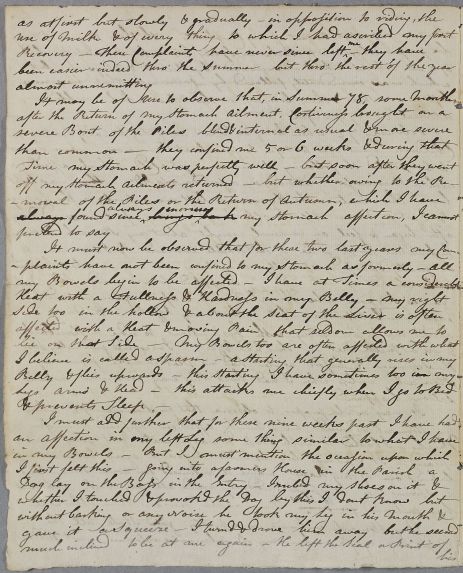 as at first but slowly & gradually - in opposition to riding, the
use of Milk & of every thing to which I had ascribed my first
Recovery - These Complaints have never since left me - they have
been easier indeed thro' the Summer but thro' the rest of the year
almost unremitting
It may be of Use to observe that, in Summer 78, some Months
after the Return of my Stomach Ailment, Costiveness brought on a
severe Bout of the Piles blind & internal as usual & more severe
than common - they confined me 5 or 6 weeks & during that
Time my Stomach was perfectly well - but soon after they went
off my Stomach Ailments returned - but whether owing to the Re-
-moval of the Piles or the Return of Autumn, which I have
always found since, always bring back my Stomach affection, I cannot
pretend to say
It must now be observed that for these two last years my Com-
-plaints have not been confined to my Stomach as formerly - all
my Bowels begin to be affected - I have at Times a considerable
Heat with a Fullness & Hardness in my Belly - My right
Side too in the hollow & about the Seat of the Liver is often
affected with a heat & moving Pain that seldom allows me to
lie on that Side - My Bowels too are often affected with what
I believe is called a Spasm a starting that generally rises in my
Belly & flies upwards - this starting I have sometimes too in my
Legs arms & Head - this attacks me chiefly when I go to Bed
& prevents Sleep
I must add further that for these nine weeks past I have had
an affection in my left Leg some thing similar to what I have
in my Bowels - But I must mention the occasion upon which
I first felt this - going into a farmers House in the Parish a
Dog lay on the Bass in the Entry I rub'd my shoes on it &
whether I touched & provoked the Dog by this I dont know but
without barking or any noise he took my leg in his Mouth &
gave it a Squeeze - I turn'd & drove him away but he seem'd
much inclined to be at me again - he left the Seal or Print of
his